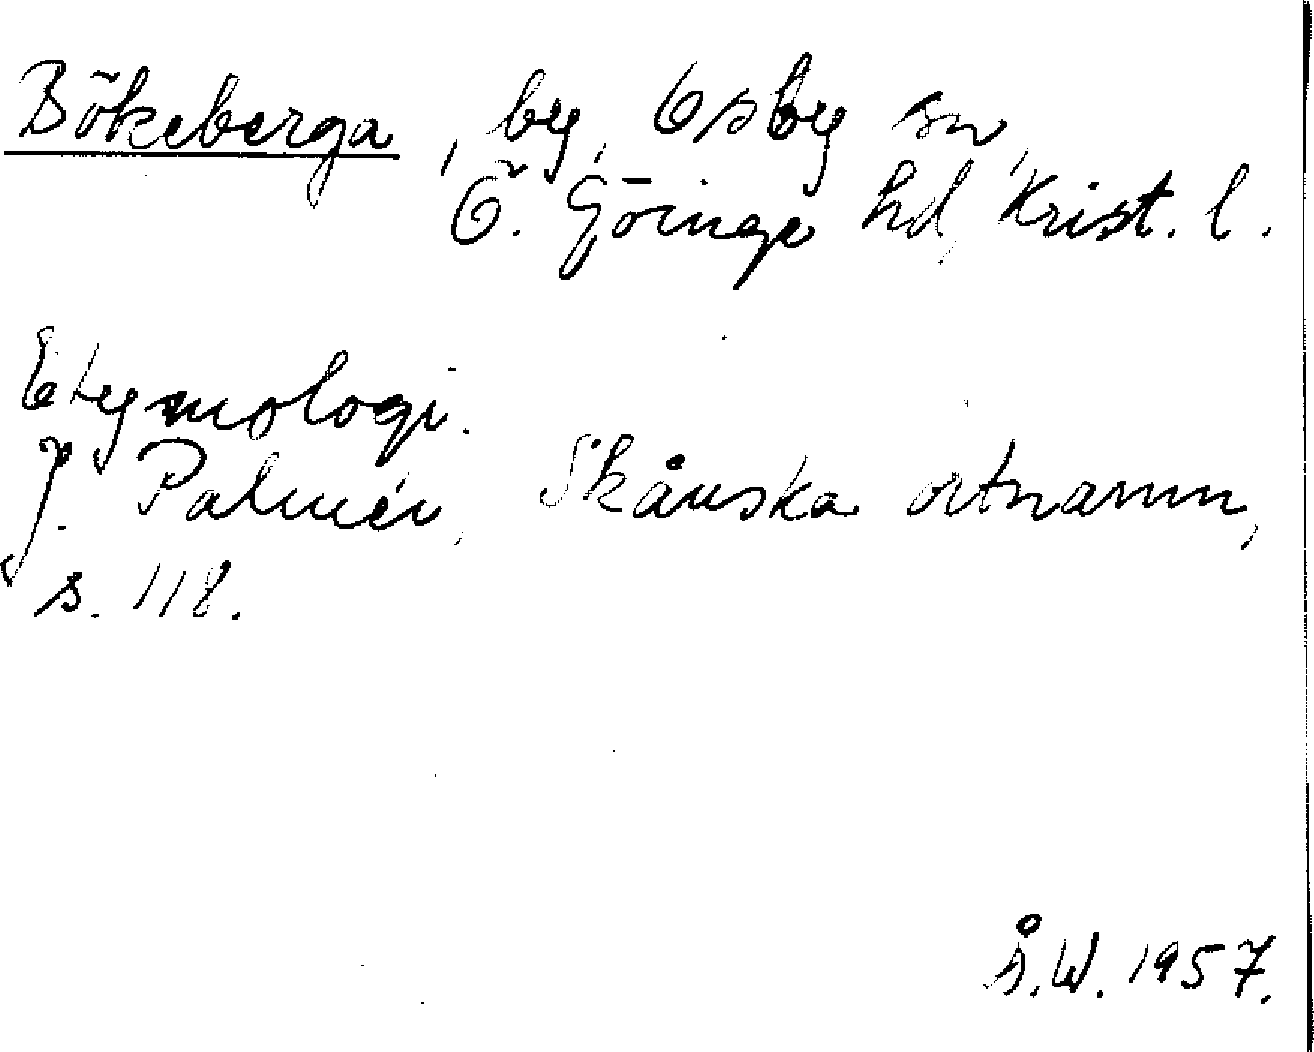 Bökeberga, by, Osby sn,
Ö. Göinge hd, Krist. l.
Etymologi.
J. Palmér, Skånska ortnamn,
s. 118.
Å.W. 1957.